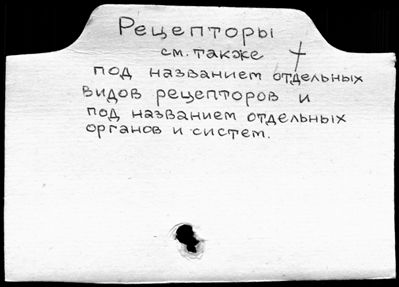 Рецепторы
см. также
под названием отдельных
видов рецепторов и
под названием отдельных
органов и систем.